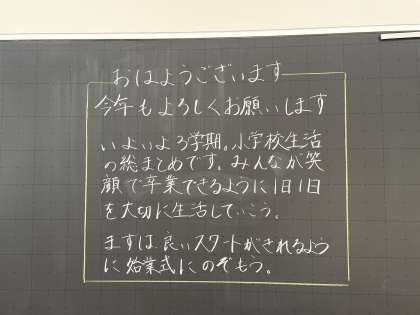 おはようございます
今年もよろしくお願いします
いよいよ3学期。小学校生活
の総まとめです。みんなが笑
顔で卒業できるように1日1日
を大切に生活していこう。
まずは良いスタートがきれるよう
に始業式にのぞもう。